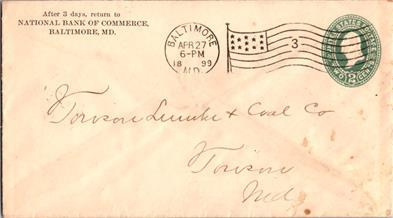 After 3 days, return to
NATIONAL BANK OF COMMERCE,
BALTIMORE, MD.
BALTIMORE
APR 27
6-PM
18 99
MD.
3
UNITED STATES
TWO 2 CENTS
Towson Lumber & Coal Co
Towson
Md